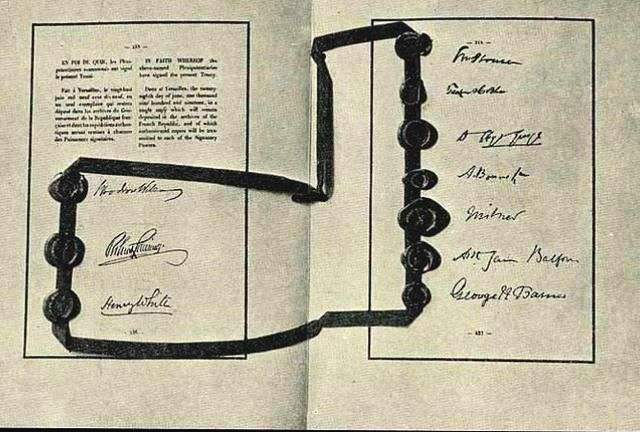 EN FOI DE QUOI, les Pléni-
potentiaires susnommés ont signé
le présent Traité.
Fait à Versailles, le vingt-huit
juin mil neuf cent dix-neuf, en
un seul exemplaire qui restera
déposé dans les archives du Gou-
vernement de la République fran-
çaise et dont les expéditions authen-
tiques seront remises à chacune
des Puissances signataires.
IN FAITH WHEREOF the
above-named Plenipotentiaries
have signed the present Treaty.
Done at Versailles, the twenty-
eighth day of June, one thousand
nine hundred and nineteen, in a
single copy which will remain
deposited in the archives of the
French Republic, and of which
authenticated copies will be trans-
mitted to each of the Signatory
Powers.
Woodrow Wilson
Robert Lansing
Henry White
D Lloyd George
A. Bonar Law
Milner
Arthur James Balfour
George N Barnes